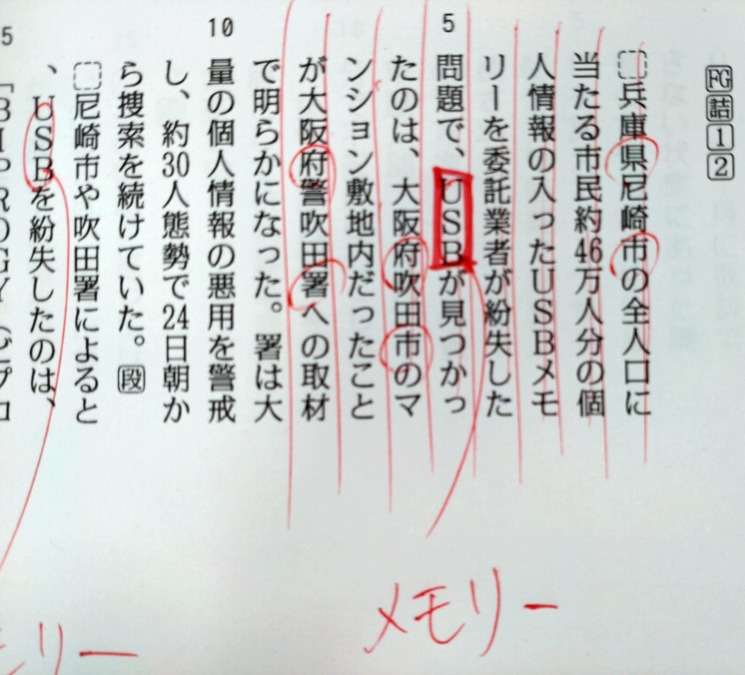 FG詰12
兵庫県尼崎市の全人口に
当たる市民約46万人分の個
人情報の入ったUSBメモ
リーを委託業者が紛失した
5
問題で、USBが見つかっ
たのは、大阪府吹田市のマ
ンション敷地内だったこと
が大阪府警吹田署への取材
で明らかになった。署は大
10
量の個人情報の悪用を警戒
し、約30人態勢で24日朝か
ら捜索を続けていた。段
尼崎市や吹田署によると
、USBを紛失したのは、
メモリー
モリー